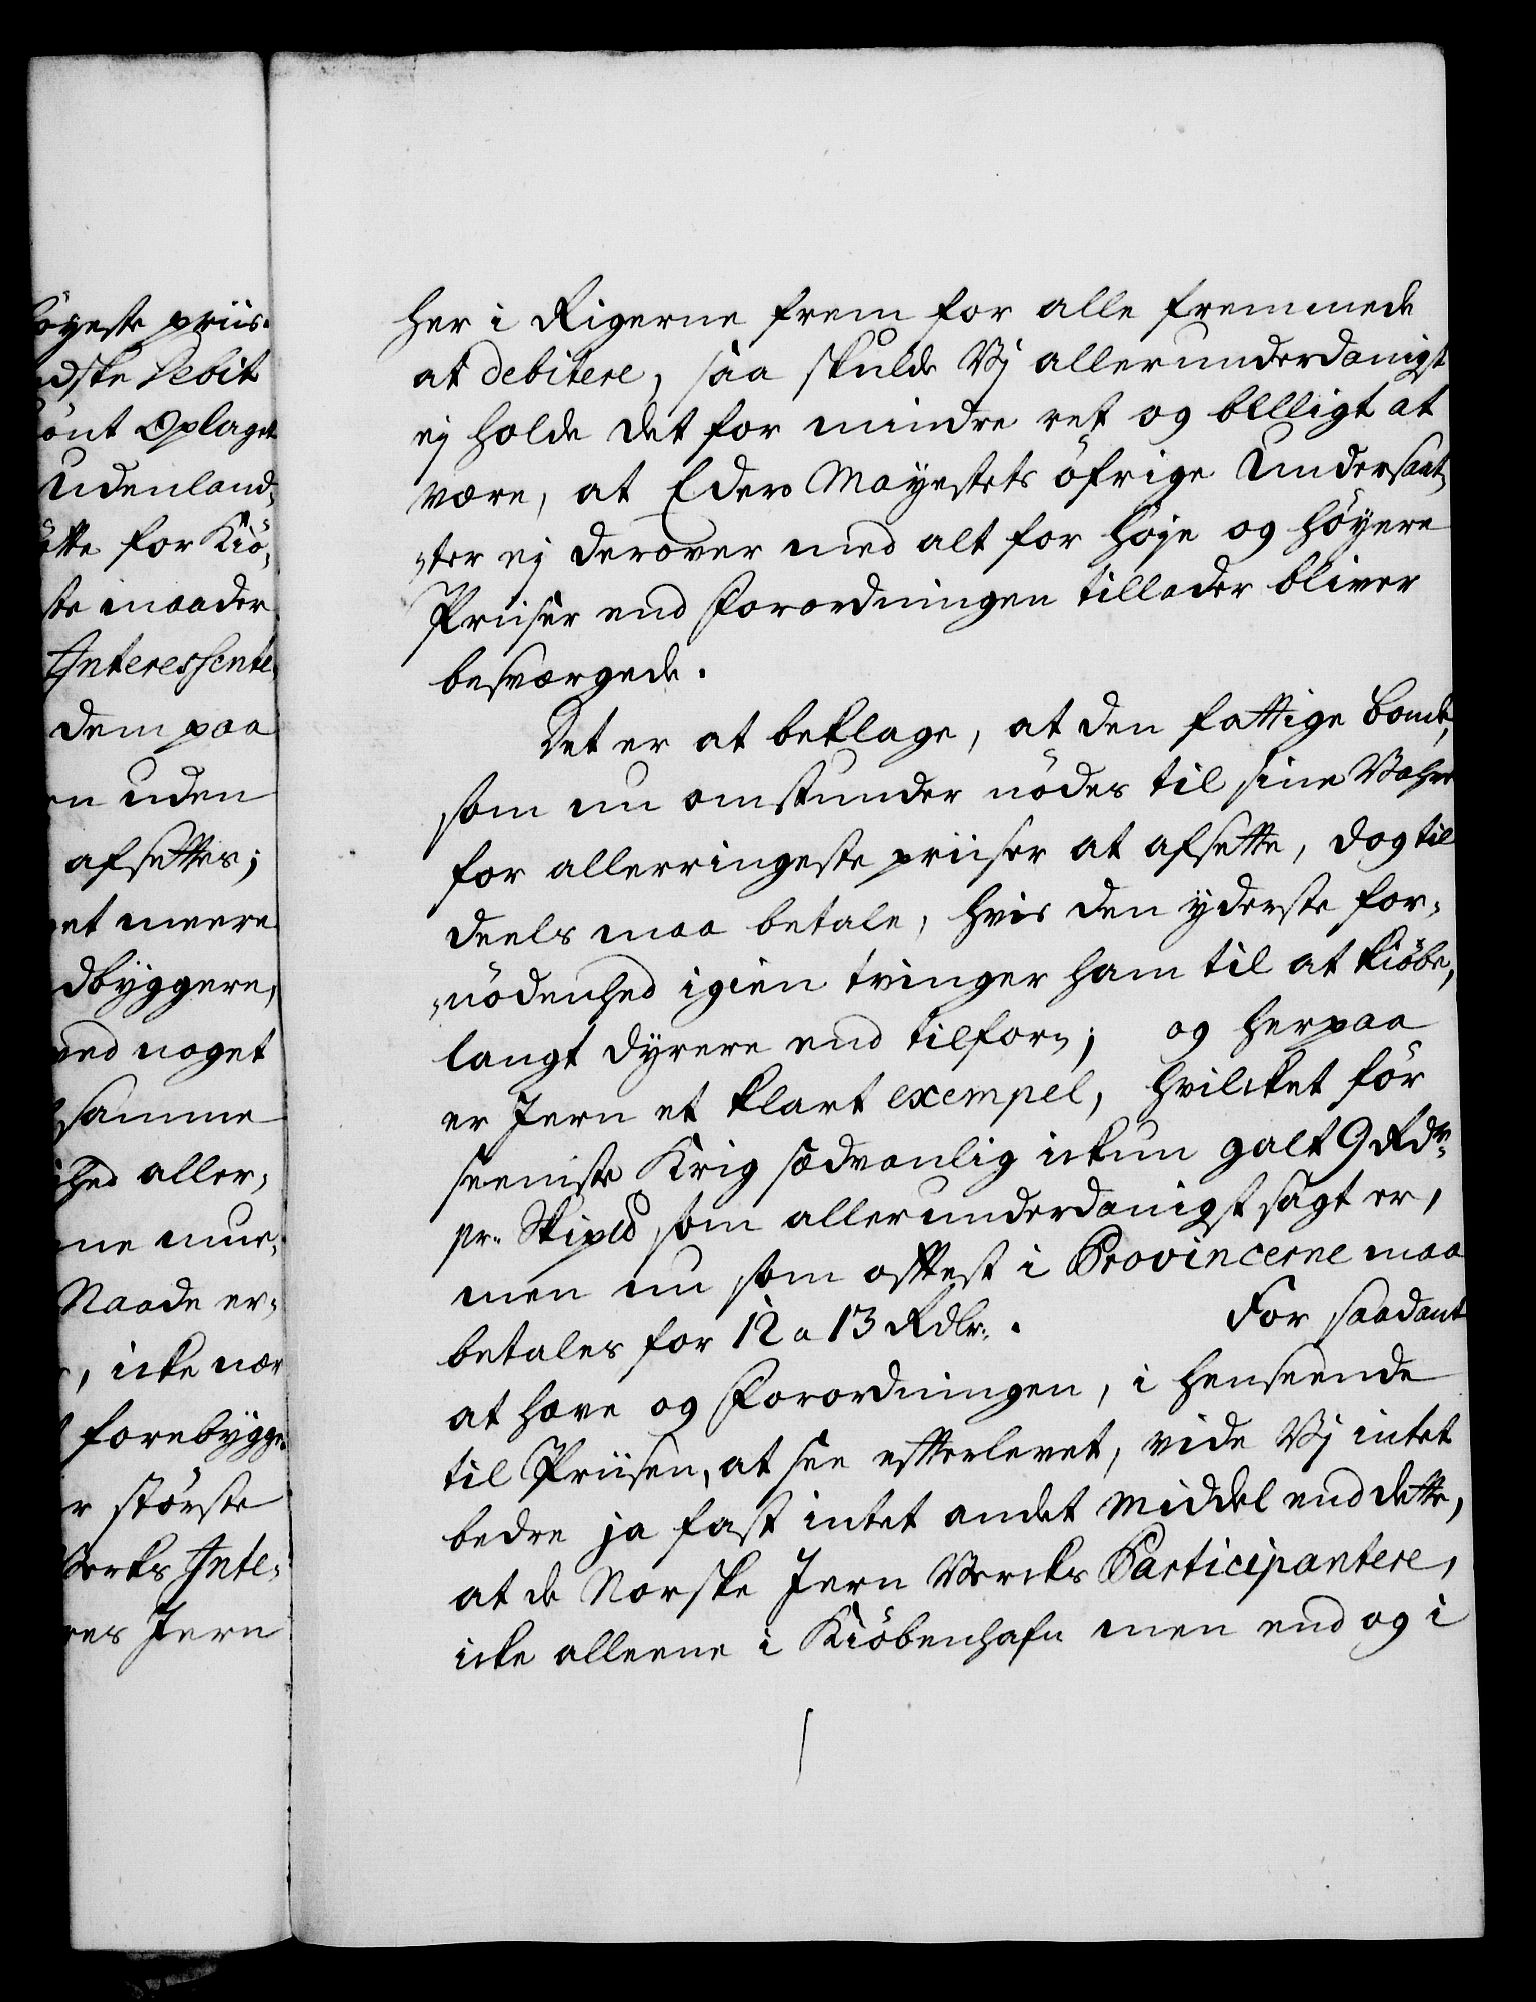 öyeste priis.
ndske Debit
önt Oplaget
Udenland,
ötte for Kiö,
ste maader
Interessente,
dem paa
en uden
afsettes;
et meere
dbyggere,
ved noget
samme
hed aller,
ne mue,
Naade er,
, icke nær
forebygge
r störste
Vercks Inte,
res Jern
her i Rigerne frem for alle fremmede
at debitere, saa skulde Vj allerunderdanigst
ej holde det for mindre ret og billigt at
være, at Eders Mayestets öfrige Undersaat,
,ter ej derover med alt for höje og höyere
Priiser end Forordningen tillader bliver
besværgede.
Det er at beklage, at den fattige bonde,
som nu omstunder nödes til sine Vahre
for allerringeste priiser at afsette, dog til
deels maa betale, hvis den yderste for,
,nödenhed igien tvinger ham til at kiöbe,
langt dyrere end tilforn; og herpaa
er Jern et klart exempel, hvilcket för
seeniste Krig sædvanlig ickun galt 9 Rdr.
pr. Skipld som allerunderdanigst sagt er,
men nu som oftest i Provincerne maa
betales for 12 a 13 Rdlr. For saadant
at have og Forordningen, i henseende
til Priisen, at see efterlevet, vide Vj intet
bedre ja fast intet andet middel end dette,
at de Norske Jern Vercks Participantere,
icke alleene i Kiöbenhafn men end og i